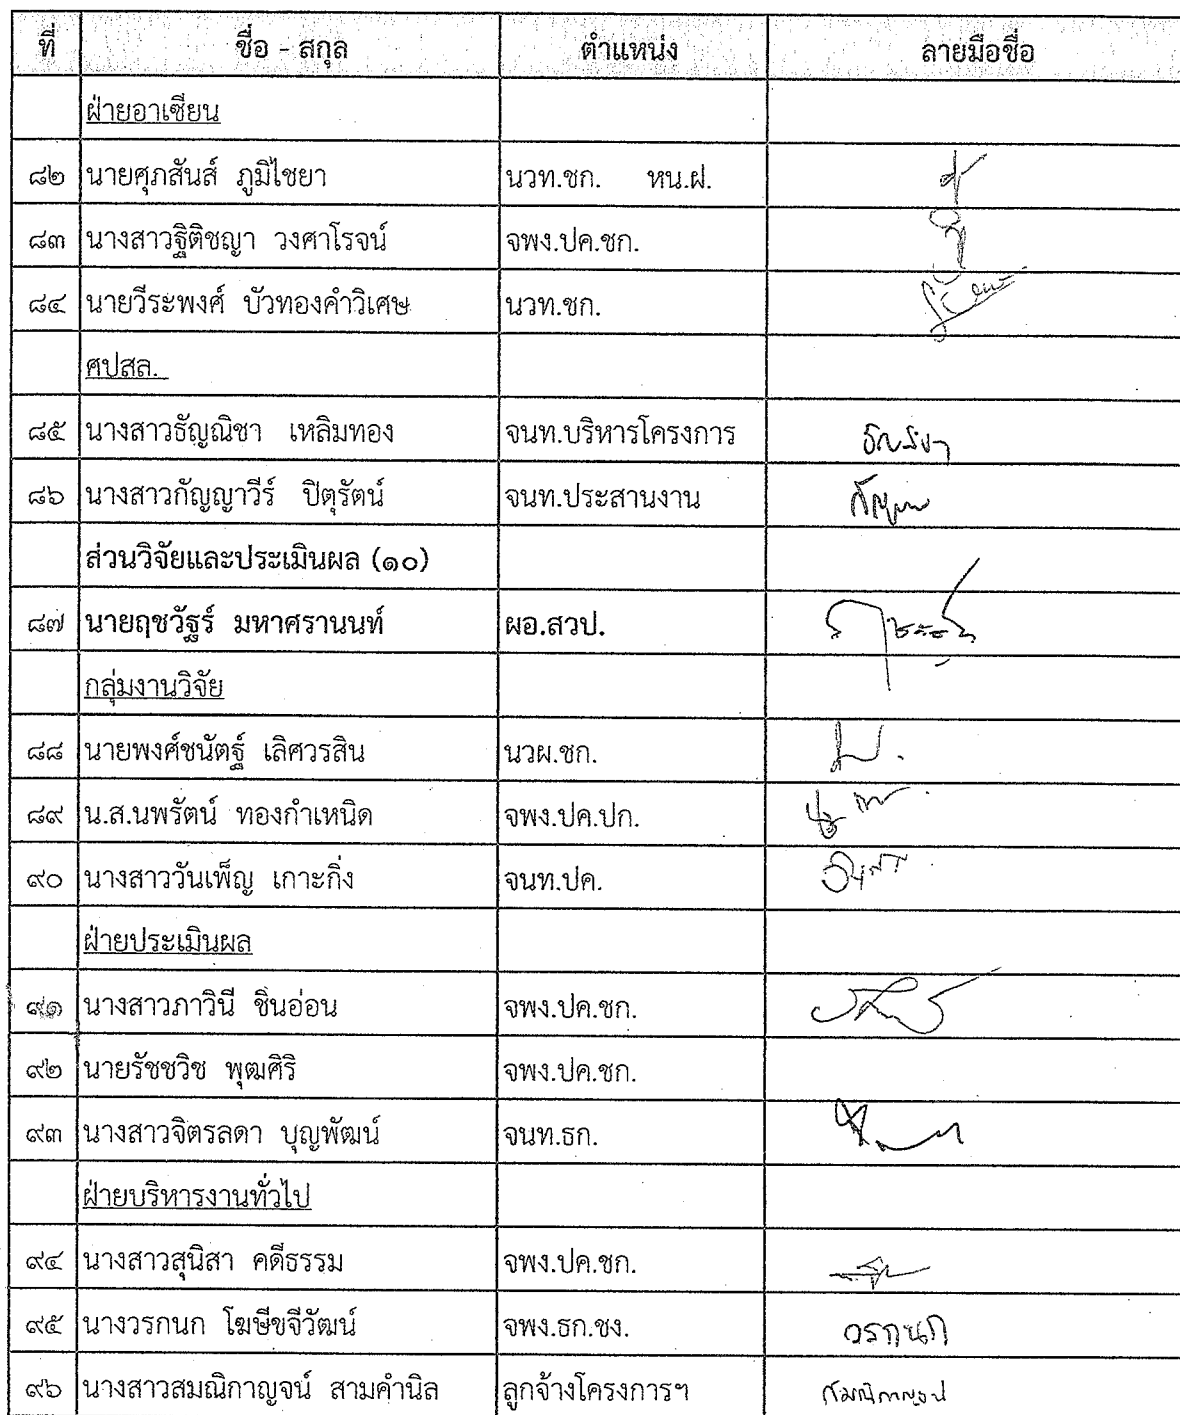 ที่ ชื่อ - สกุล ตำแหน่ง ลายมือชื่อ
ฝ่ายอาเซียน
๘๒ นายศุภสันส์ ภูมิไชยา นวท.ชก. หน.ฝ.
๘๓ นางสาวฐิติชญา วงศาโรจน์ จพง.ปค.ชก.
๘๔ นายวีระพงศ์ บัวทองคำวิเศษ นวท.ชก.
ศปสล.
๘๕ นางสาวธัญณิชา เหลิมทอง จนท.บริหารโครงการ ธัญณิชา
๘๖ นางสาวกัญญาวีร์ ปิตุรัตน์ จนท.ประสานงาน
ส่วนวิจัยและประเมินผล (๑๐)
๘๗ นายฤชวัฐร์ มหาศรานนท์ ผอ.สวป.
กลุ่มงานวิจัย
๘๘ นายพงศ์ชนัตฐ์ เลิศวรสิน นวผ.ชก.
๘๙ น.ส.นพรัตน์ ทองกำเหนิด จพง.ปค.ปก.
๙๐ นางสาววันเพ็ญ เกาะกิ่ง จนท.ปค.
ฝ่ายประเมินผล
๙๑ นางสาวภาวินี ชินอ่อน จพง.ปค.ชก.
๙๒ นายรัชชวิช พุฒศิริ จพง.ปค.ชก.
๙๓ นางสาวจิตรลดา บุญพัฒน์ จนท.ธก.
ฝ่ายบริหารงานทั่วไป
๙๔ นางสาวสุนิสา คดีธรรม จพง.ปค.ชก.
๙๕ นางวรกนก โฆษีขจีวัฒน์ จพง.ธก.ชง. วรกนก
๙๖ นางสาวสมณิกาญจน์ สามคำนิล ลูกจ้างโครงการฯ